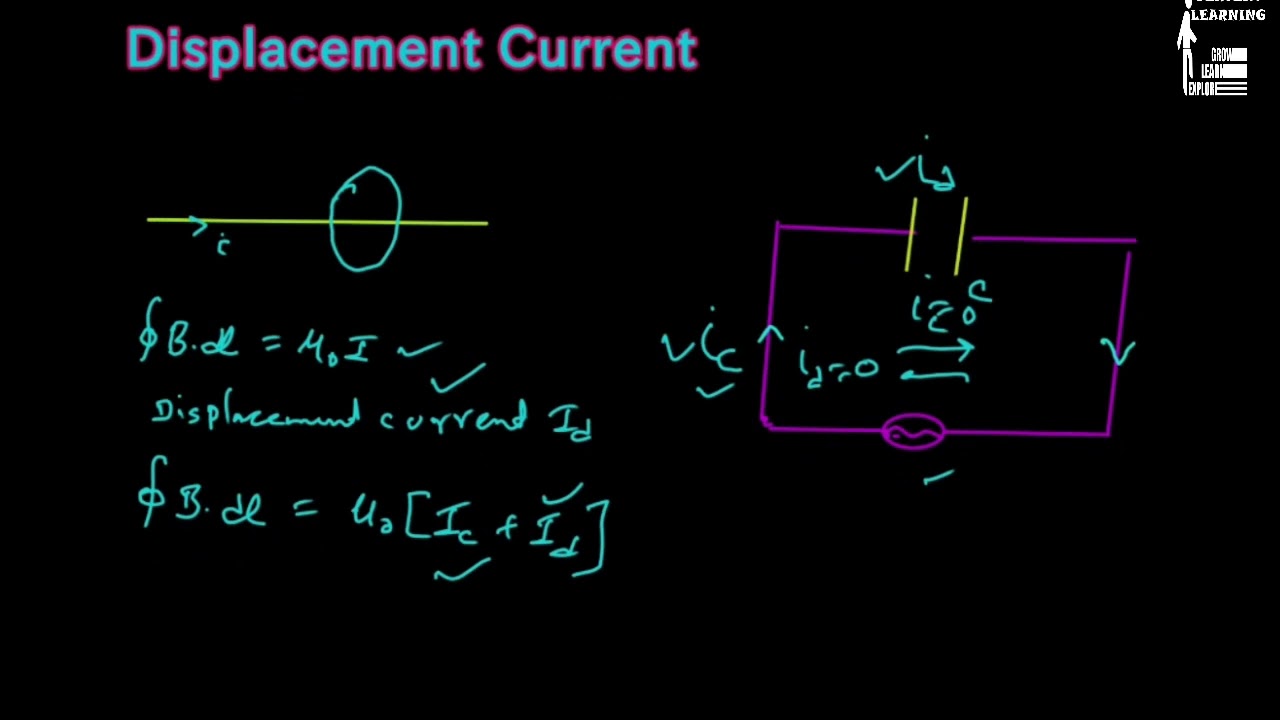 Displacement Current
LEARNING
GROW
LEARN
EXPLORE
i
∮B.dl = μ₀I
Displacement current Id
∮B.dl = μ₀[Ic + Id]
id
ic
ic=0
id=0